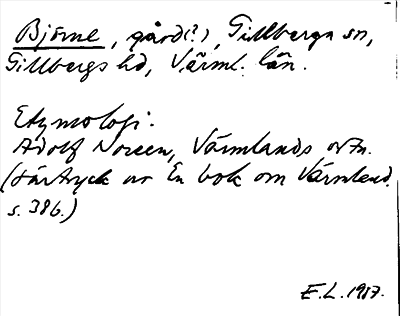 Björne, gård(?), Gillberga sn,
Gillbergs hd, Värml. län.
Etymologi:
Adolf Noreen, Värmlands ortn.
(särtryck av En bok om Värmland.
s. 386.)
E.L. 1917.